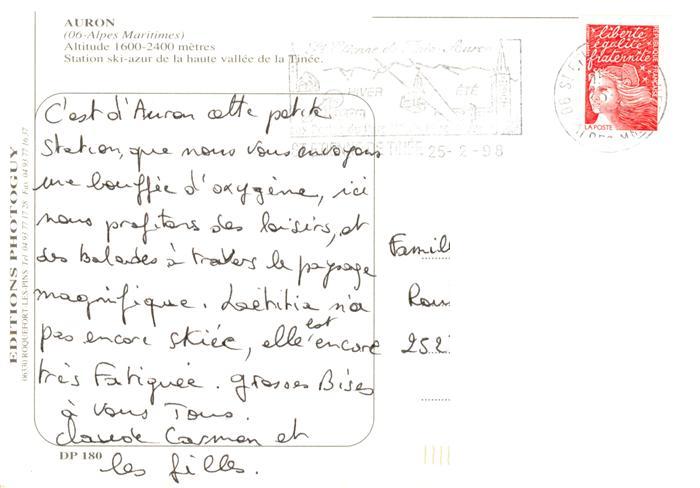 AURON
(06-Alpes Maritimes)
Altitude 1600-2400 mètres
Station ski-azur de la haute vallée de la Tinée.
HIVER ÉTÉ
25-2-98
liberté
égalité
fraternité
RÉPUBLIQUE FRANÇAISE
LA POSTE
C'est d'Auron cette petite
Station, que nous vous envoyons
une bouffée d'oxygène, ici
nous profitons des loisirs, et
des balades à travers le paysage
magnifique. Laëtitia n'a
pas encore skiée, elle est encore
très Fatiguée. grosses Bises
à vous Tous.
Claude Carmen et
les filles.
Famil
Rou
252
EDITIONS PHOTOGUY
06330 ROQUEFORT-LES-PINS Tel 04 93 77 17 28 Fax 04 93 77 16 37
DP 180